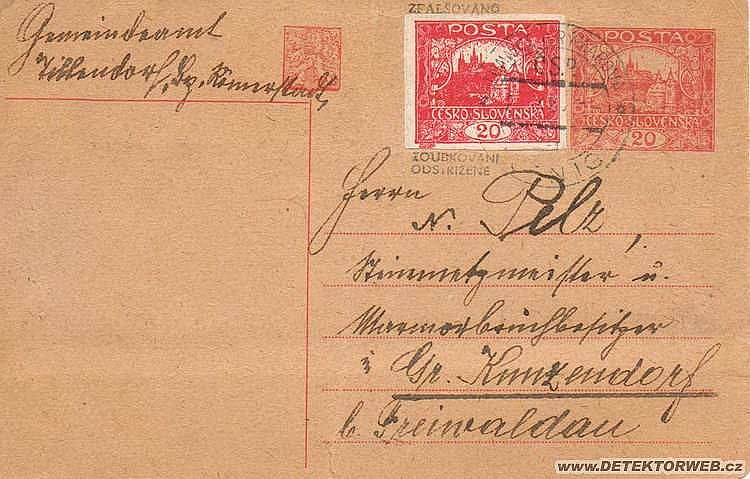 Gemeindeamt
Tillendorf, Bz. Römerstadt
ZFALŠOVÁNO
POSTA
ČESKO-SLOVENSKÁ
20
POSTA
ČESKO-SLOVENSKÁ
20
ČSP
ZOUBKOVÁNÍ
ODSTŘIŽENÉ
Herrn
N. Pelz,
Steinmetzmeister u.
Marmorbruchbesitzer
i Gr. Kunzendorf
b. Freiwaldau
www.DETEKTORWEB.cz